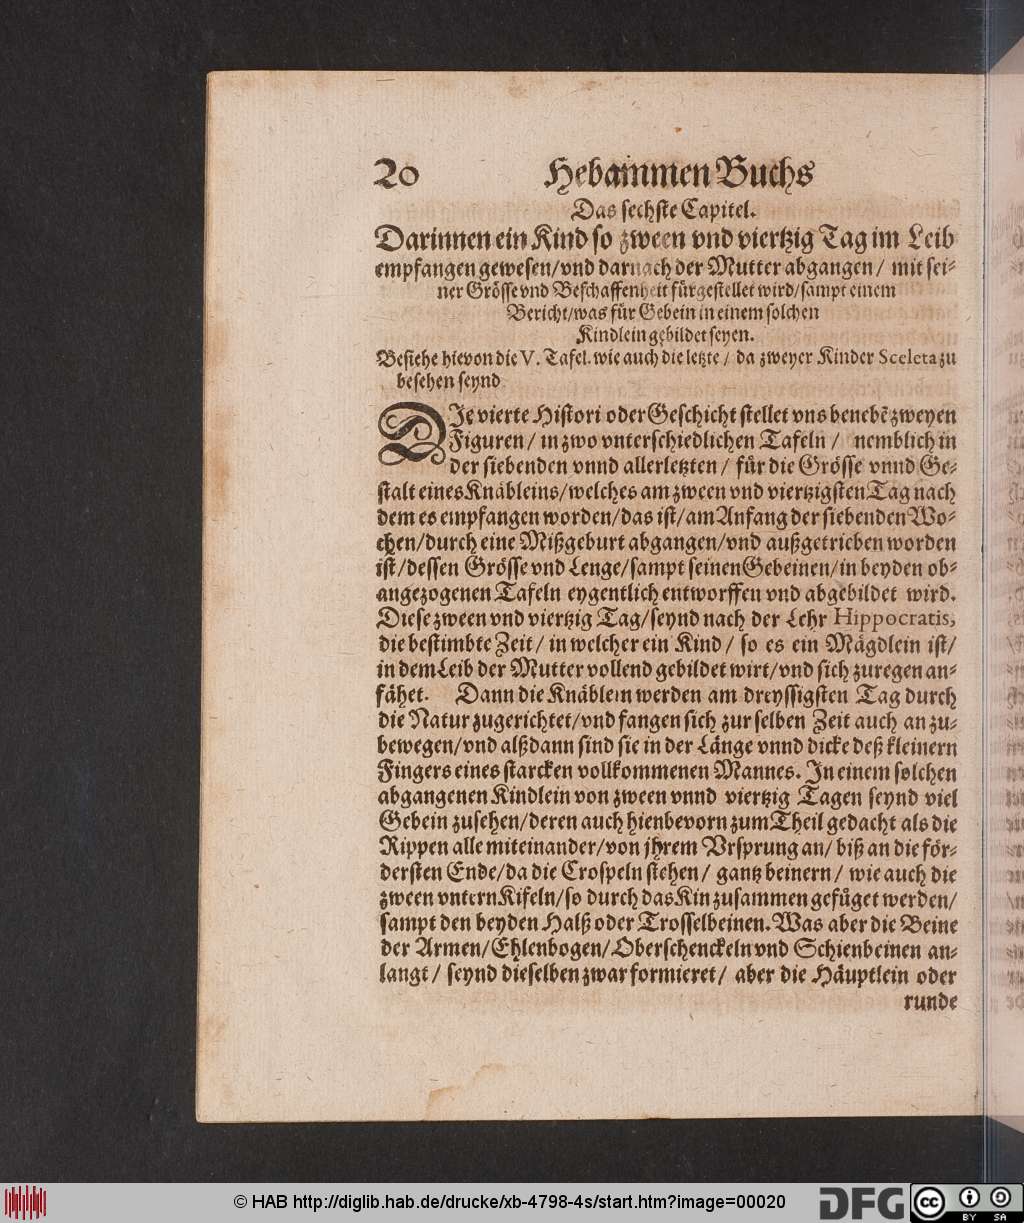 20 Hebammen Buchs
Das sechste Capitel.
Darinnen ein Kind so zween vnd viertzig Tag im Leib
empfangen gewesen/vnd darnach der Mutter abgangen/ mit sei-
ner Grösse vnd Beschaffenheit fürgestellet wird/sampt einem
Bericht/was für Gebein in einem solchen
Kindlein gebildet seyen.
Besiehe hievon die V. Tafel. wie auch die letzte/ da zweyer Kinder Sceleta zu
besehen seynd
DIe vierte Histori oder Geschicht stellet vns benebẽ zweyen
Figuren/ in zwo vnterschiedlichen Tafeln/ nemblich in
der siebenden vnnd allerletzten/ für die Grösse vnnd Ge-
stalt eines Knäbleins/welches am zween vnd viertzigsten Tag nach
dem es empfangen worden/das ist/am Anfang der siebenden Wo-
chen/durch eine Mißgeburt abgangen/vnd außgetrieben worden
ist/dessen Grösse vnd Lenge/sampt seinen Gebeinen/in beyden ob-
angezogenen Tafeln eygentlich entworffen vnd abgebildet wird.
Diese zween vnd viertzig Tag/seynd nach der Lehr Hippocratis,
die bestimbte Zeit/ in welcher ein Kind/ so es ein Mägdlein ist/
in dem Leib der Mutter vollend gebildet wirt/vnd sich zuregen an-
fähet. Dann die Knäblein werden am dreyssigsten Tag durch
die Natur zugerichtet/vnd fangen sich zur selben Zeit auch an zu-
bewegen/vnd alßdann sind sie in der Länge vnnd dicke deß kleinern
Fingers eines starcken vollkommenen Mannes. In einem solchen
abgangenen Kindlein von zween vnnd viertzig Tagen seynd viel
Gebein zusehen/deren auch hienbevorn zum Theil gedacht als die
Rippen alle miteinander/von jhrem Vrsprung an/ biß an die för-
dersten Ende/da die Crospeln stehen/ gantz beinern/ wie auch die
zween vntern Kifeln/so durch das Kin zusammen gefüget werden/
sampt den beyden Halß oder Trosselbeinen. Was aber die Beine
der Armen/Ehlenbogen/Oberschenckeln vnd Schienbeinen an-
langt/ seynd dieselben zwar formieret/ aber die Häuptlein oder
runde
© HAB http://diglib.hab.de/drucke/xb-4798-4s/start.htm?image=00020
DFG
cc BY SA